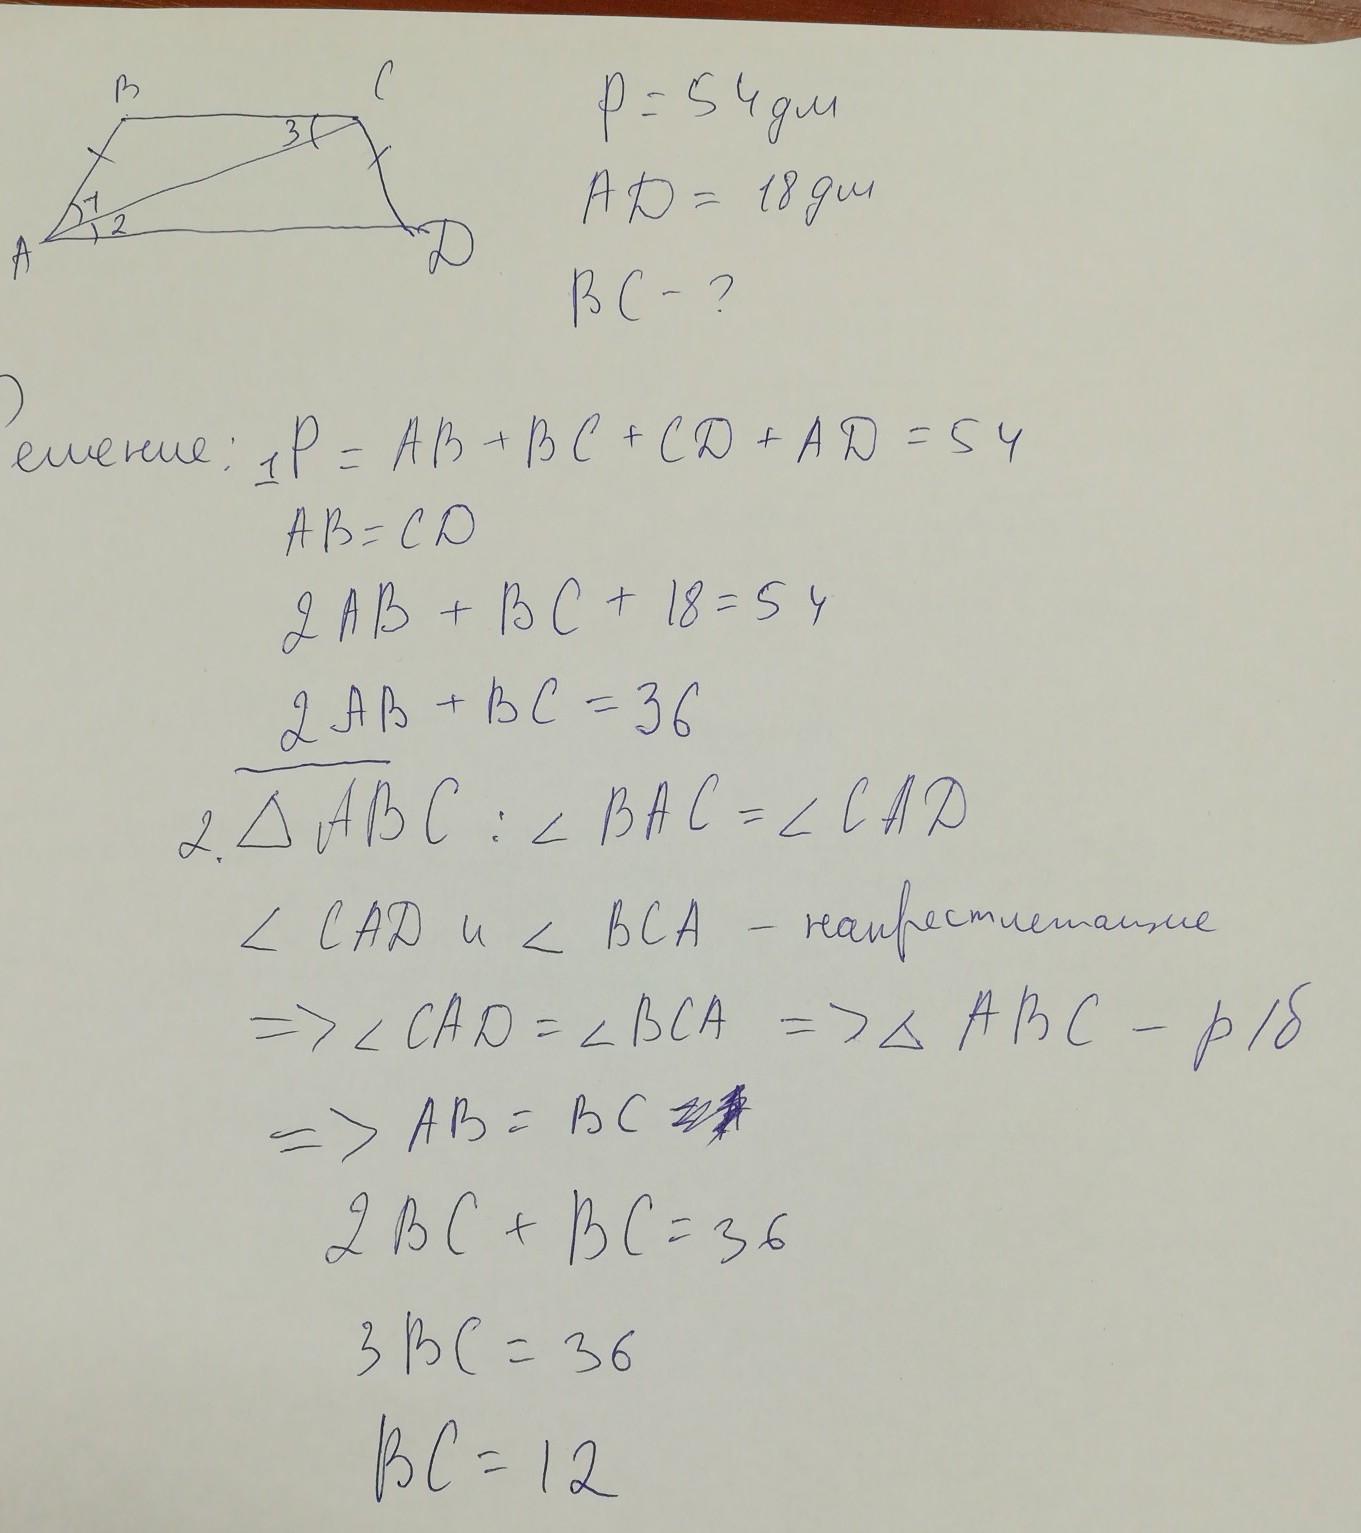 B C
3
1
2
A D
P = 54 дм
AD = 18 дм
BC - ?
Решение: 1 P = AB + BC + CD + AD = 54
AB = CD
2AB + BC + 18 = 54
2AB + BC = 36
2. △ ABC : ∠ BAC = ∠ CAD
∠ CAD и ∠ BCA - накрестлежащие
=> ∠ CAD = ∠ BCA => △ ABC - р/б
=> AB = BC
2BC + BC = 36
3BC = 36
BC = 12